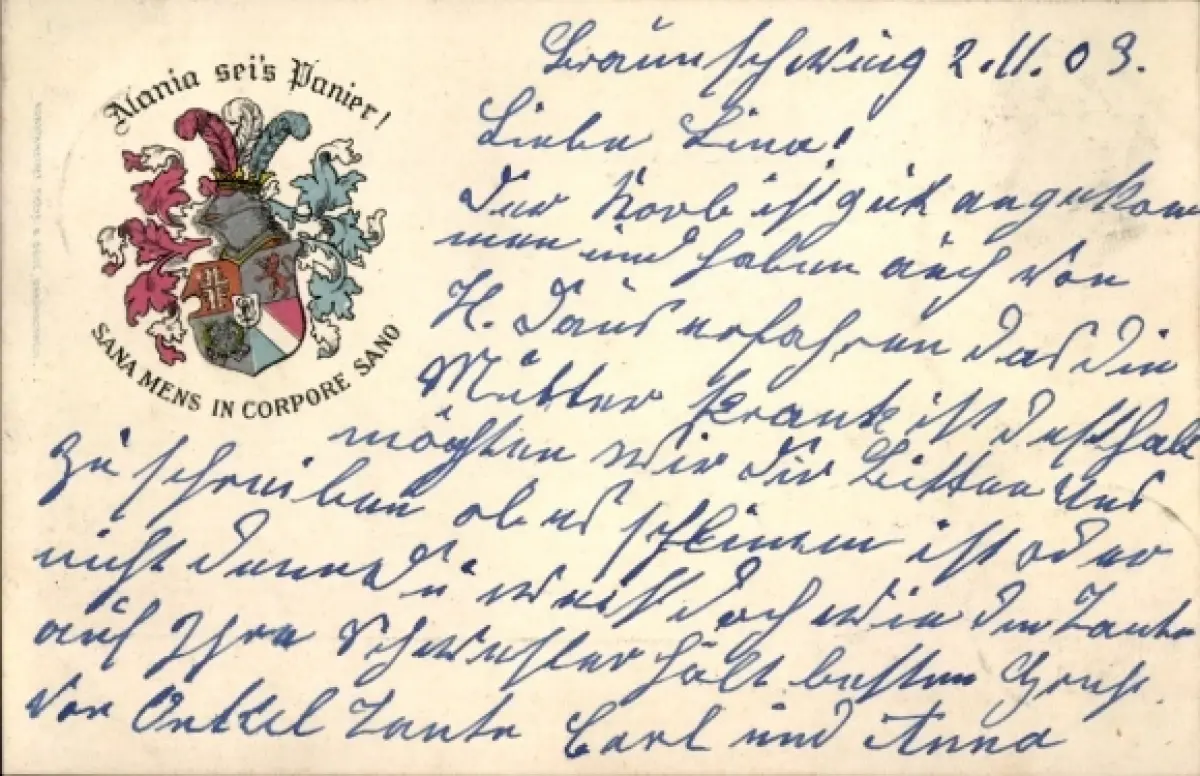 Alania sei's Panier!
SANA MENS IN CORPORE SANO
Braunschweig 2.11.03.
Liebe Lina!
Der Korb ist gut angekom
men und haben auch von
H. Daus erfahren das die
Mutter krank ist desshalb
möchten wir Dir bitten uns
zu schreiben ob es schlimm ist oder
nicht denn Du weist doch wie die Tante
auf Ihre Schwester hält besten Gruß
von Onkel Tante Carl und Anna